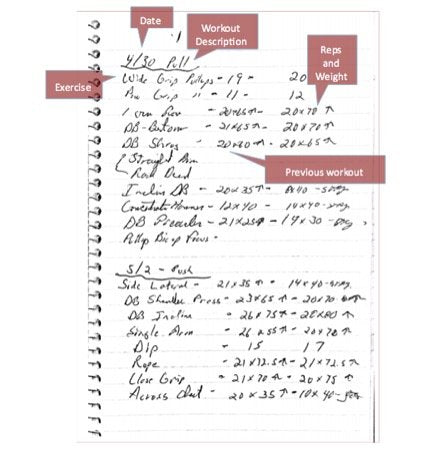 Date
Workout Description
Reps and Weight
Exercise
Previous workout
4/30 Pull
Wide Grip Pullups - 19 - 20
Grip " - 11 - 12
1 arm Row - 20x65↑ - 20x70↑
DB- - 21x65↑ - 20x70↑
DB Shrug - 20x80↑ - 20x65↑
Straight Arm
Rear Dead
Incline DB - 20x35↑ -
Concentrate Hammer - 12x40 - 14x40 -
DB Preacher - 21x25↑ - 14x30 -
Pullup Bicep Focus -
5/2 - Push
Side Lateral - 21x35↑ - 14x40 -
DB Shoulder Press - 23x65↑ - 20x70
DB Incline - 26x75↑ - 20x80↑
Single Arm - 26x55↑ - 20x70↑
Dip - 15 17
Rope - 21x72.5↑ - 21x72.5↑
Close Grip - 21x70↑ - 20x75↑
Across Chest - 20x35↑ - 10x40 -